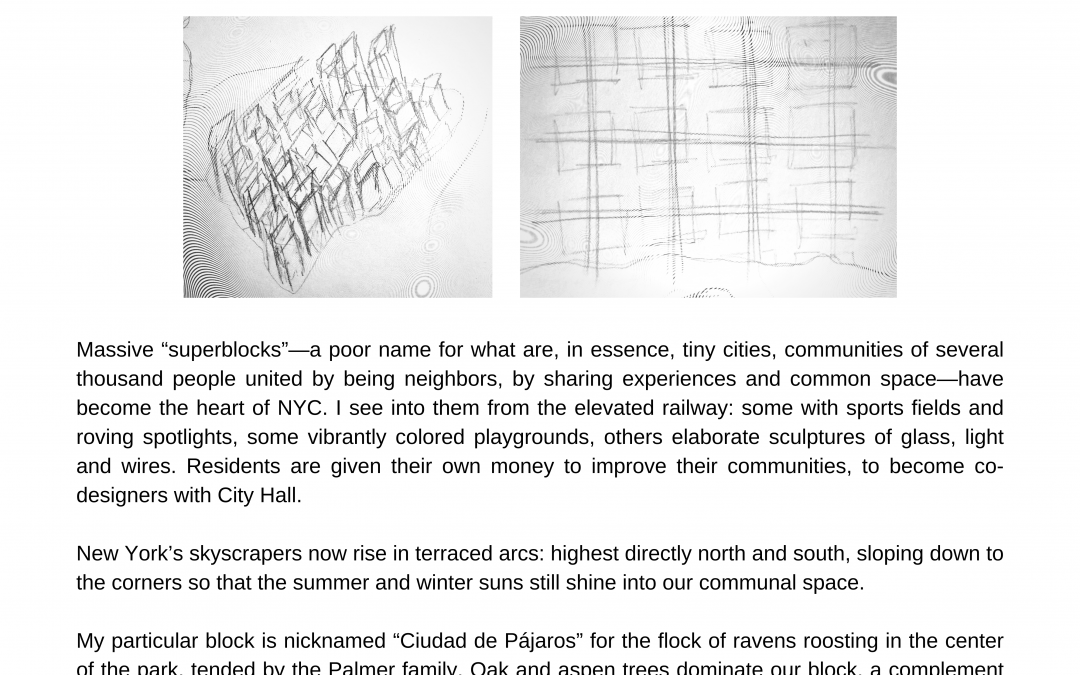 Massive “superblocks”—a poor name for what are, in essence, tiny cities, communities of several
thousand people united by being neighbors, by sharing experiences and common space—have
become the heart of NYC. I see into them from the elevated railway: some with sports fields and
roving spotlights, some vibrantly colored playgrounds, others elaborate sculptures of glass, light
and wires. Residents are given their own money to improve their communities, to become co-
designers with City Hall.
New York’s skyscrapers now rise in terraced arcs: highest directly north and south, sloping down to
the corners so that the summer and winter suns still shine into our communal space.
My particular block is nicknamed “Ciudad de Pájaros” for the flock of ravens roosting in the center
of the park, tended by the Palmer family. Oak and aspen trees dominate our block, a complement